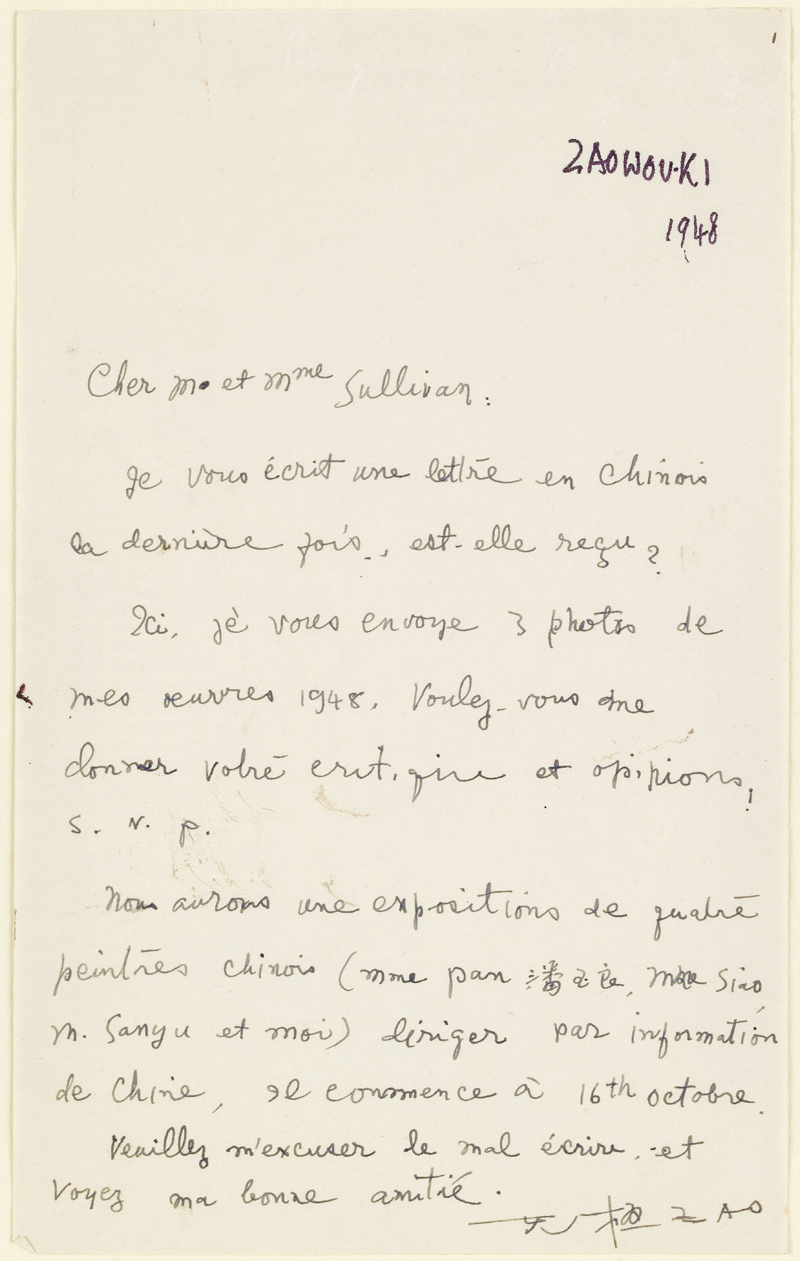 1
ZAO WOU-KI
1948
Cher M. et Mme Sullivan.
Je vous écrit une lettre en chinois
la dernière fois, est-elle reçu?
Ici, je vous envoye 3 photos de
mes œuvres 1948. Voulez-vous me
donner votre critique et opipions,
s. v. p.!
Nous aurons une expositions de quatre
peintres chinois (Mme Pan 潘玉良, Mme Siao
M. Sanyu et moi) diriger par information
de Chine, il commence à 16th octobre.
Veuillez m'excuser le mal écrire, et
Voyez ma bonne amitié.
无极 ZAO